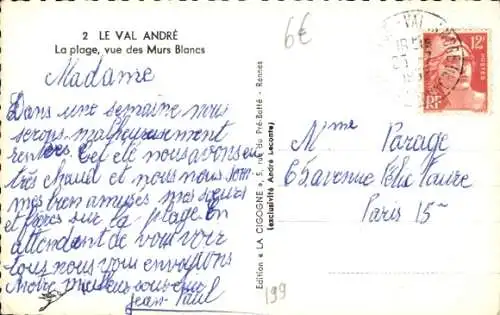 2 LE VAL ANDRÉ
La plage, vue des Murs Blancs
Madame
Dans une semaine nous
serons malheureusement
rentrés. Cet été nous avons eu
très chaud et nous nous som
mes bien amusés mes sœurs
et frères sur la plage. En
attendant de vous voir
tous nous vous envoyons
notre meilleur souvenir
Jean-Paul
Edition « LA CIGOGNE », 5, rue du Pré-Botté - Rennes
(exclusivité André Leconte)
6€
VAL ANDRÉ
12F
POSTES
RF
Mme Parage
65 avenue Félix Faure
Paris 15
199